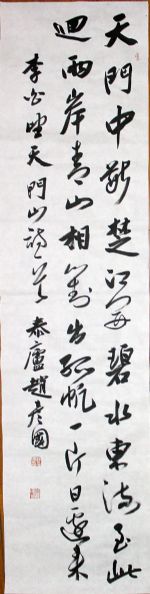 天門中斷楚江開碧水東流至此
迴兩岸青山相對出孤帆一片日邊來
李白望天門山詩一首 泰廬趙彦國